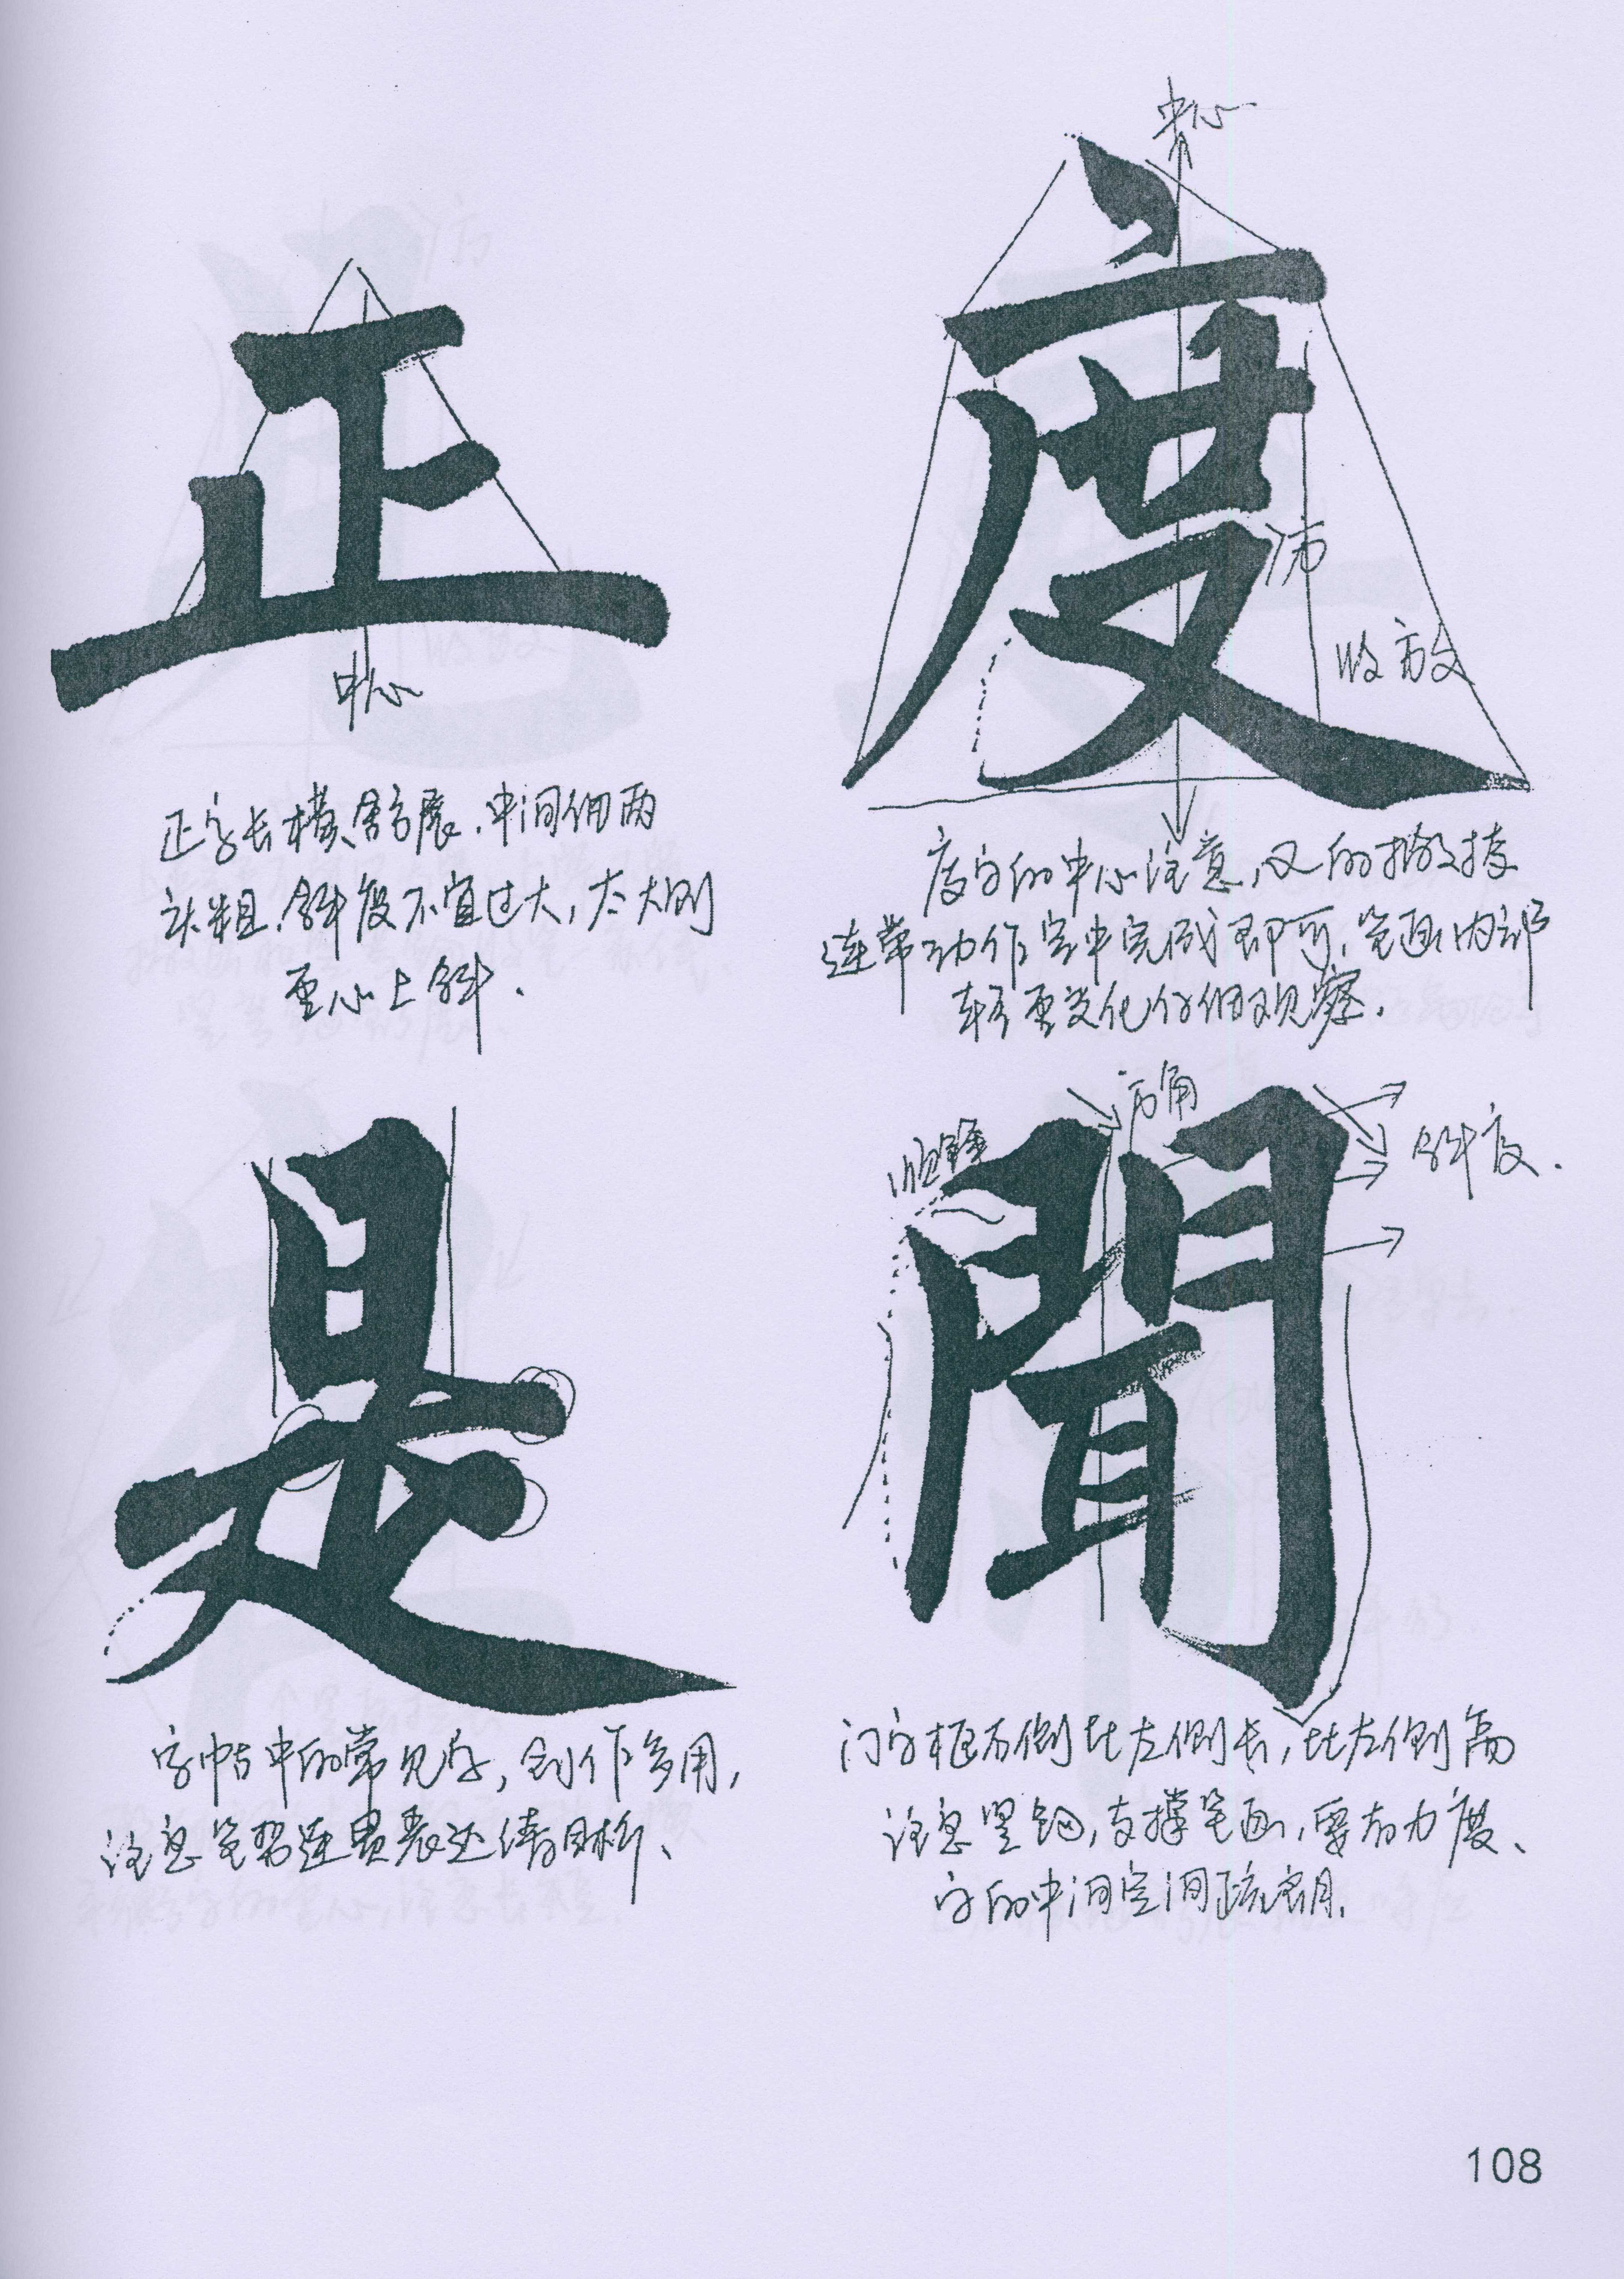 正
中心
正字长横舒展.中间细两
头粗.斜度不宜过大,太大则
重心上斜.
中心
度
方
收放
度字的中心注意,又的撇捺
连带动作空中完成即可.笔画内部
轻重变化仔细观察.
是
字帖中的常见字,创作多用,
注意笔势连贯表达清晰、
方角
顺锋
聞
斜度.
门字框右侧比左侧长,比左侧高
注意竖钩,支撑笔画,要有力度、
字的中间空间疏朗.
108